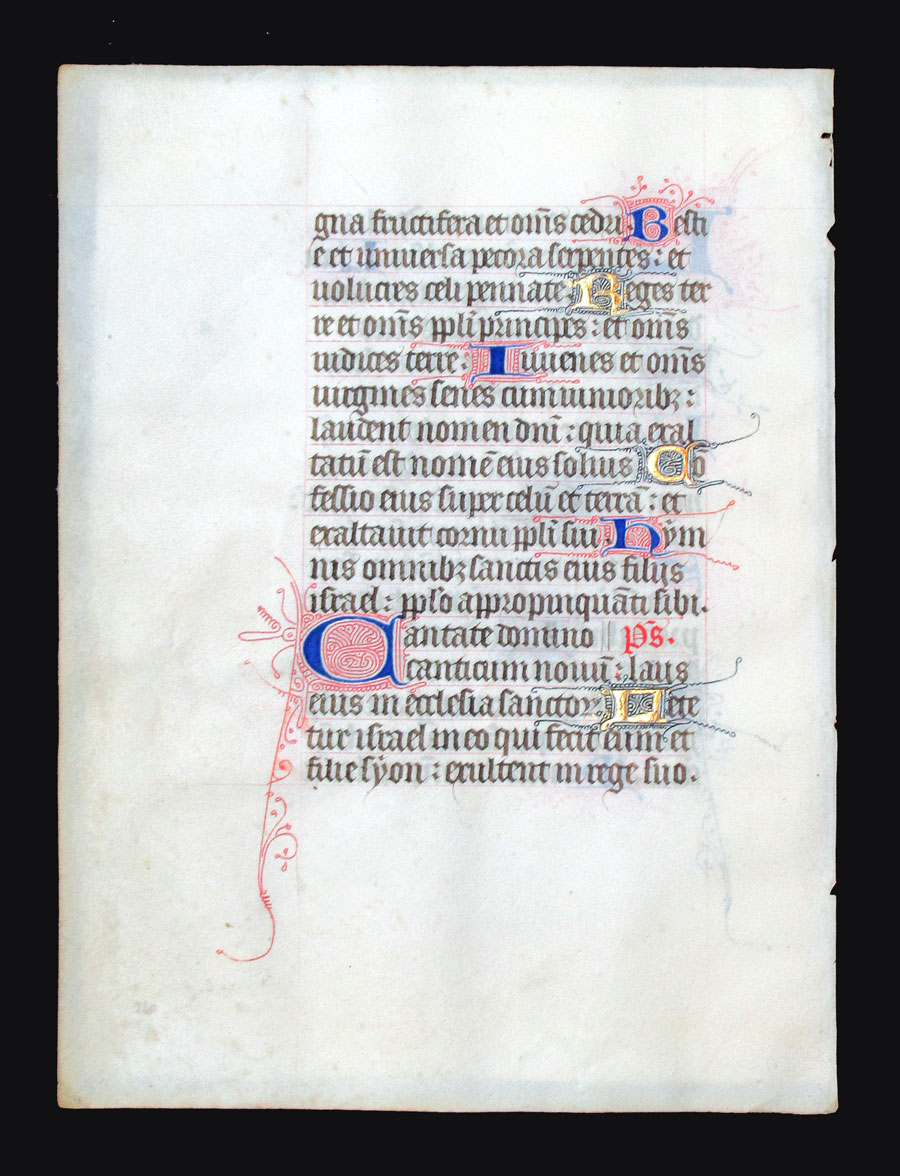 gna fructifera et om̄s cedri. Besti
e et universa pecora serpentes: et
volucres celi pennate. Reges ter
re et om̄s ppl̄i principes: et om̄s
iudices terre: Iuvenes et om̄s
virgines senes cum iunioribꝫ:
laudent nomen dn̄i: quia exal
tatū est nomē eius solius Cō
fessio eius super celū et terrā: et
exaltavit cornu ppl̄i sui. Hym
nis omnibꝫ sanctis eius filijs
israel: ppl̄o appropinquāti sibi.
Cantate domino p̄s.
canticum novū: laus
eius in ecclesia sanctoꝝ Lete
tur israel in eo qui fecit eum et
filie syon: exultent in rege suo.